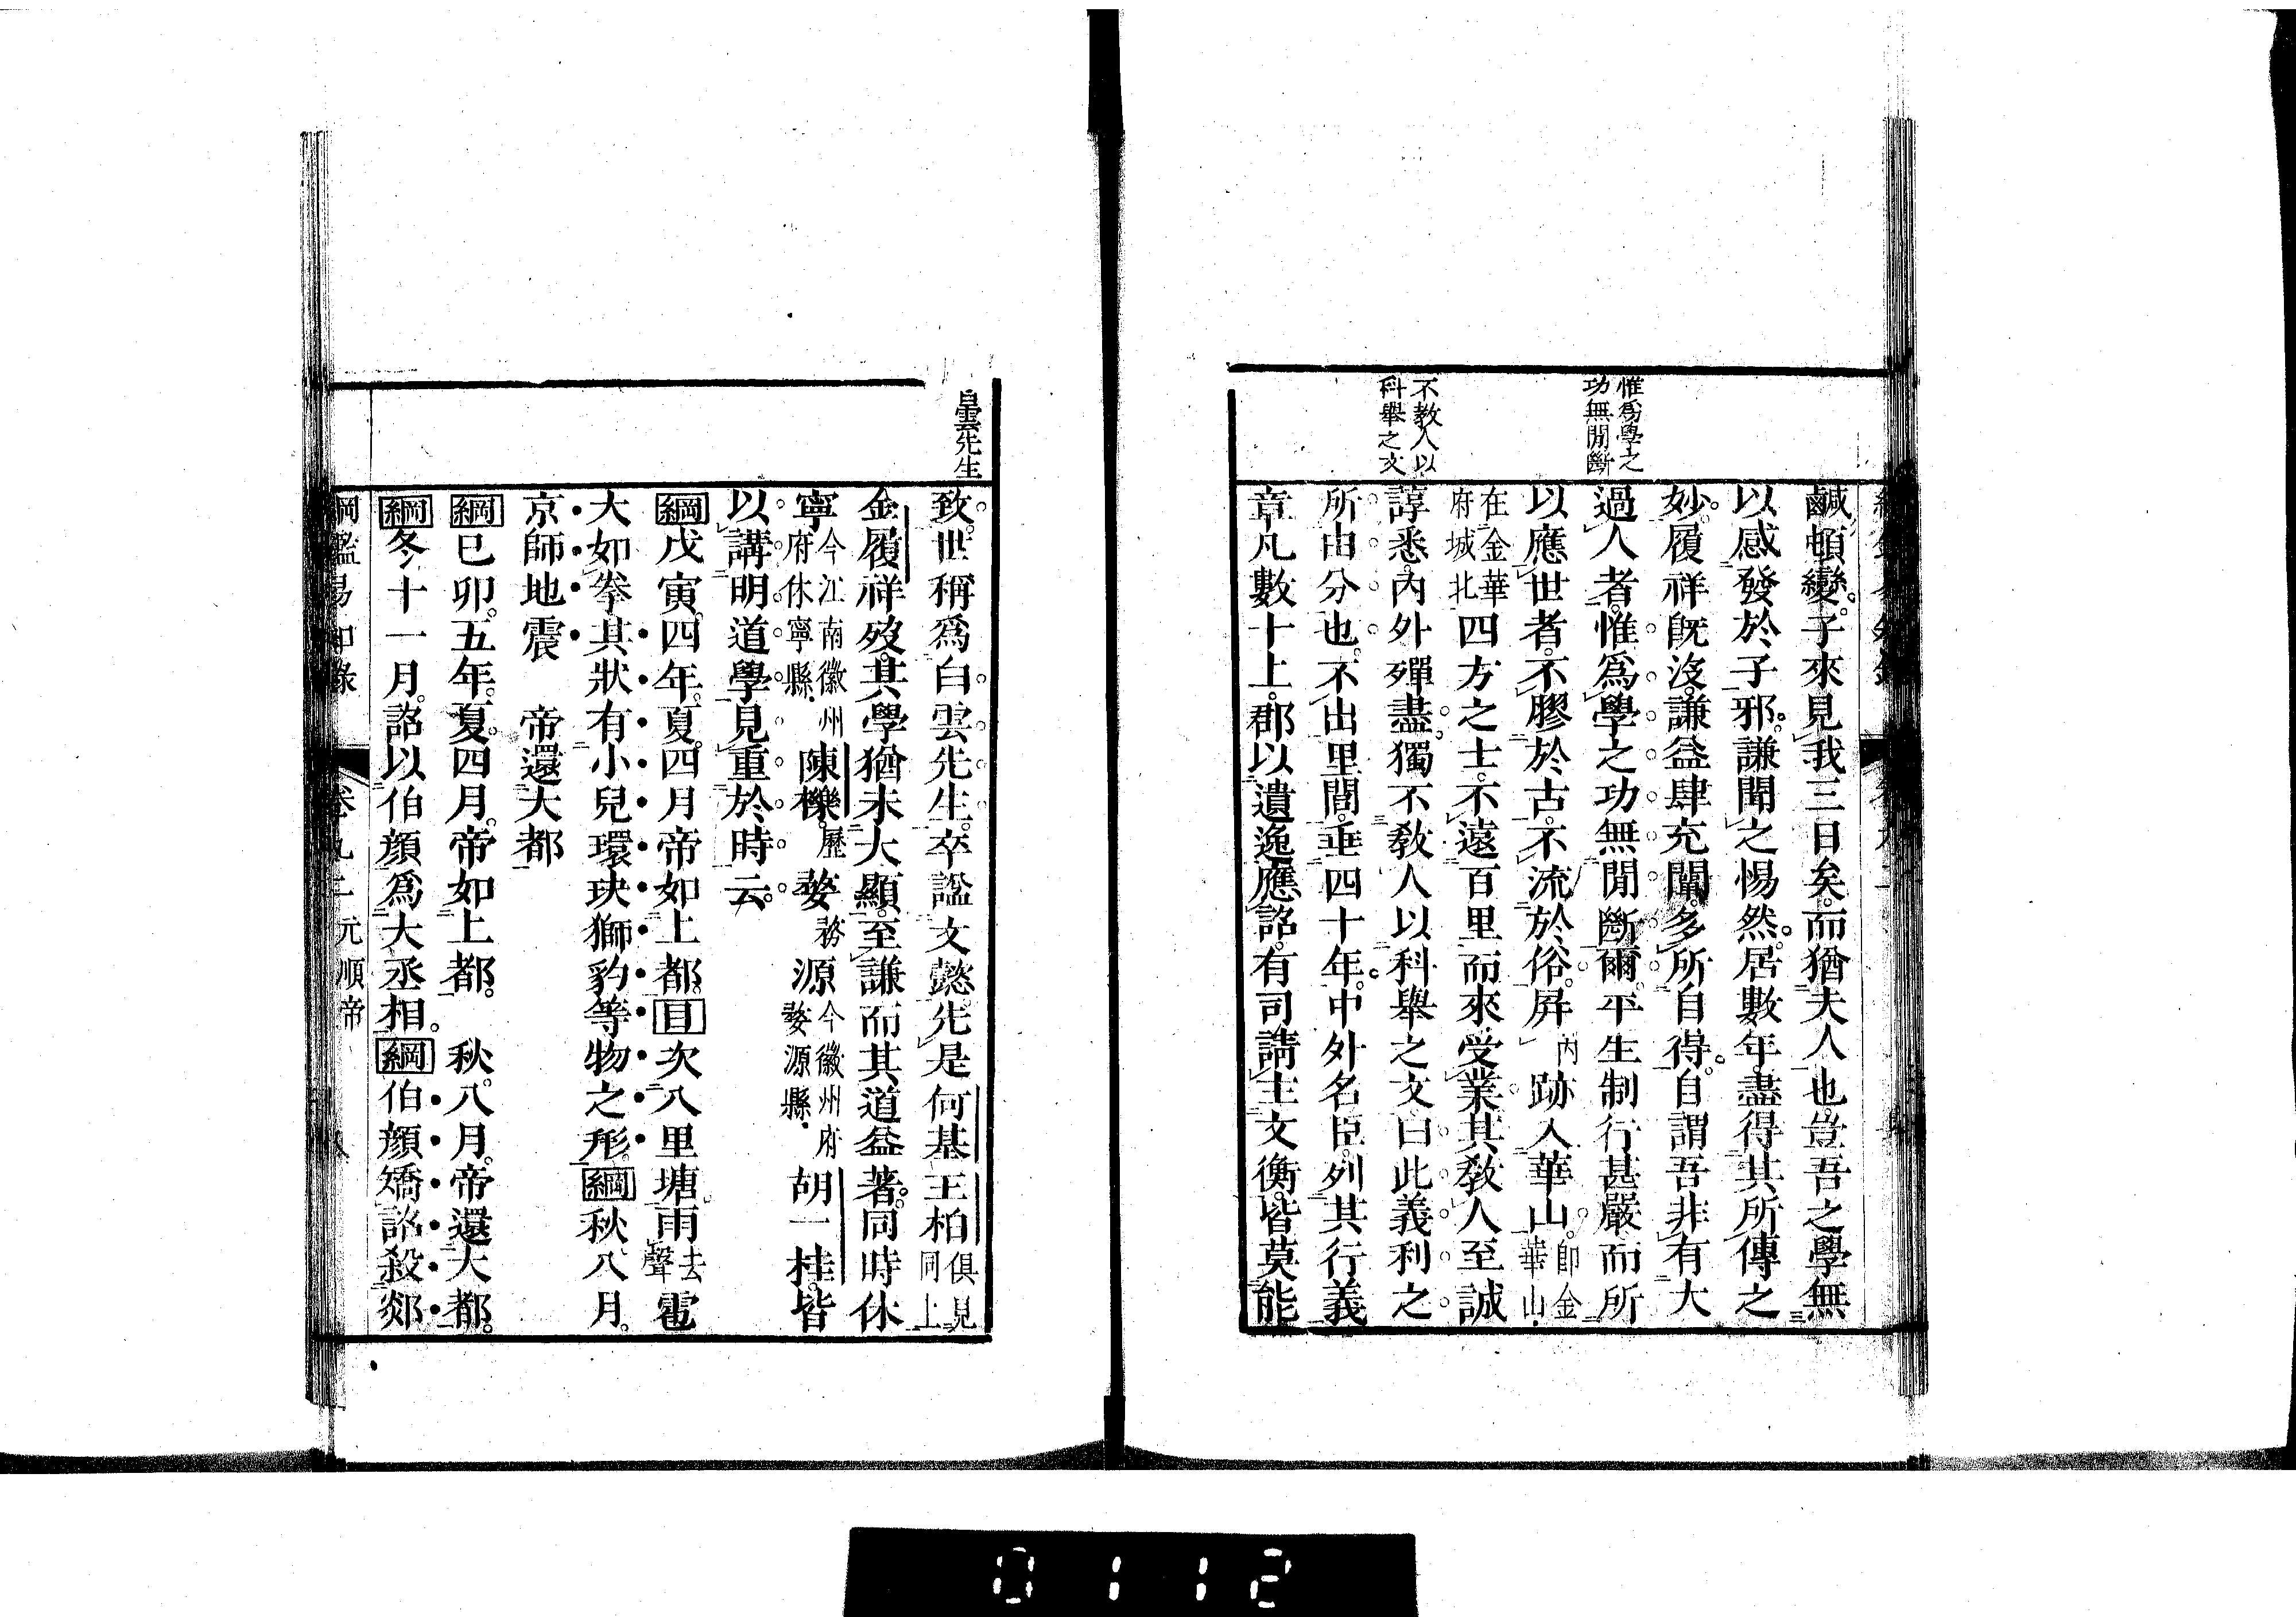 惟爲學之
功無閒斷
不教人以
科舉之文
鹹頓變。子來見我三日矣。而猶夫人也。豈吾之學無
以感發於子邪。謙聞之惕然。居數年。盡得其所傳之
妙。履祥旣沒。謙益肆充闡。多所自得。自謂吾非有大
過人者。惟爲學之功無閒斷爾。平生制行甚嚴。而所
以應世者。不膠於古。不流於俗。屏內跡入華山。卽金華山。
在金華府城北四方之士。不遠百里而來受業。其敎人至誠
諄悉。內外殫盡。獨不敎人以科舉之文。曰此義利之
所由分也。不出里閭。垂四十年。中外名臣。列其行義
章凡數十上。郡以遺逸應詔。有司請主文衡。皆莫能
白雲先生
致。世稱爲白雲先生。卒諡文懿。先是何基王柏俱見同上
金履祥歿。其學猶未大顯。至謙而其道益著。同時休
寧今江南徽州府休寧縣。陳櫟。歷婺務源今徽州府婺源縣。胡一桂。皆
以講明道學見重於時云。
綱戊寅。四年。夏。四月。帝如上都。目次八里塘。雨去聲雹
大如拳。其狀有小兒環玦獅豹等物之形。綱秋八月。
京師地震 帝還大都
綱巳卯。五年。夏。四月。帝如上都。 秋。八月。帝還大都。
綱冬十一月。詔以伯顏爲大丞相。綱伯顏矯詔殺郯
綱鑑易知錄 卷九二 元順帝 八
0112